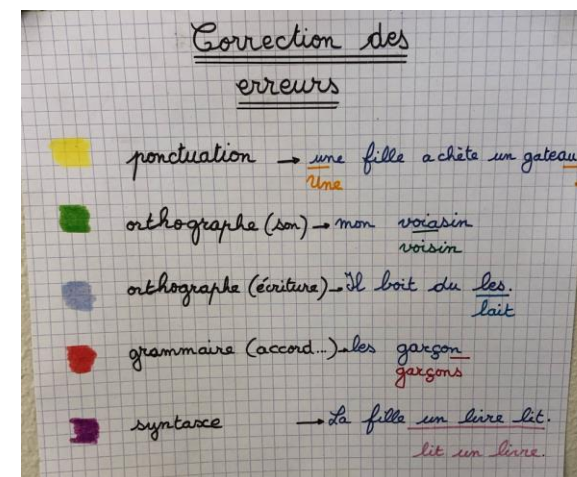 Correction des
erreurs
ponctuation → une fille achète un gateau
Une
orthographe (son) → mon voiasin
voisin
orthographe (écriture) → Il boit du les.
lait
grammaire (accord...) → les garçon
garçons
syntaxe → La fille un livre lit.
lit un livre.